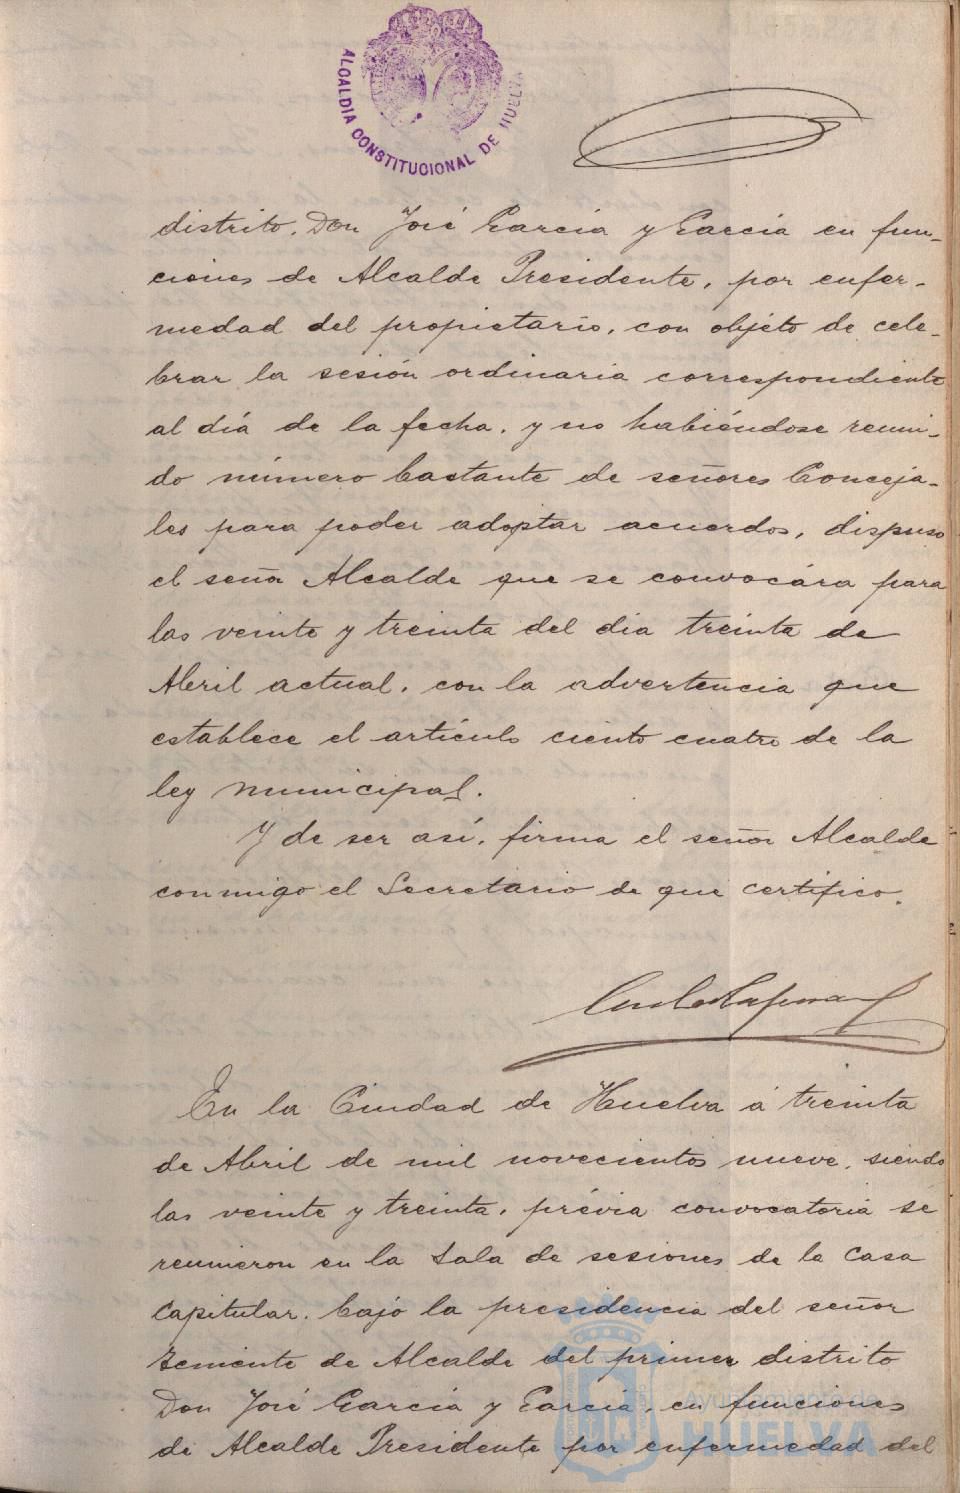 ALCALDIA CONSTITUCIONAL DE HUELVA
distrito, Don José García y García en fun-
ciones de Alcalde Presidente, por enfer-
medad del propietario, con objéto de cele-
brar la sesión ordinaria correspondiente
al día de la fecha, y no habiéndose reuni-
do número bastante de señores Conceja-
les para poder adoptar acuerdos, dispuso
el señor Alcalde que se convocára para
las veinte y treinta del dia treinta de
Abril actual, con la advertencia que
establece el artículo ciento cuatro de la
ley municipal.
Y de ser así, firma el señor Alcalde
conmigo el Secretario de que certifico.
En la Ciudad de Huelva á treinta
de Abril de mil novecientos nueve, siendo
las veinte y treinta, prévia convocatoria se
reunieron en la Sala de sesiones de la Casa
Capitular, bajo la presidencia del señor
Teniente de Alcalde del primer distrito
Don José García y García, en funciones
de Alcalde Presidente por enfermedad del
Ayuntamiento de
HUELVA